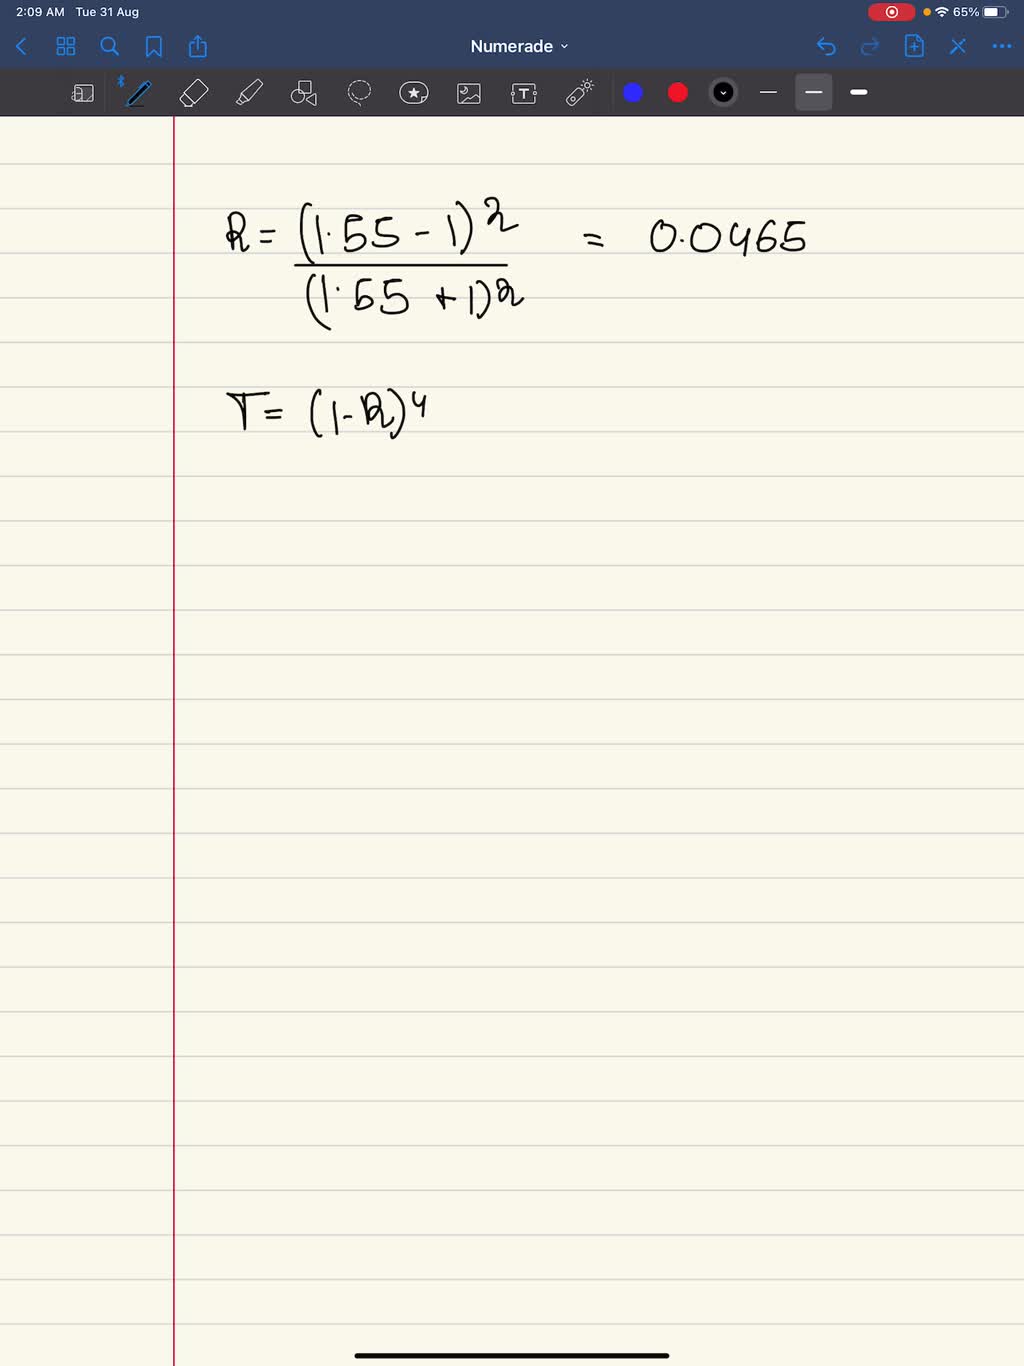 2:09 AM Tue 31 Aug 65%
Numerade
T
R = (1.55 - 1)² = 0.0465
(1.55 + 1)²
T = (1-R)⁴